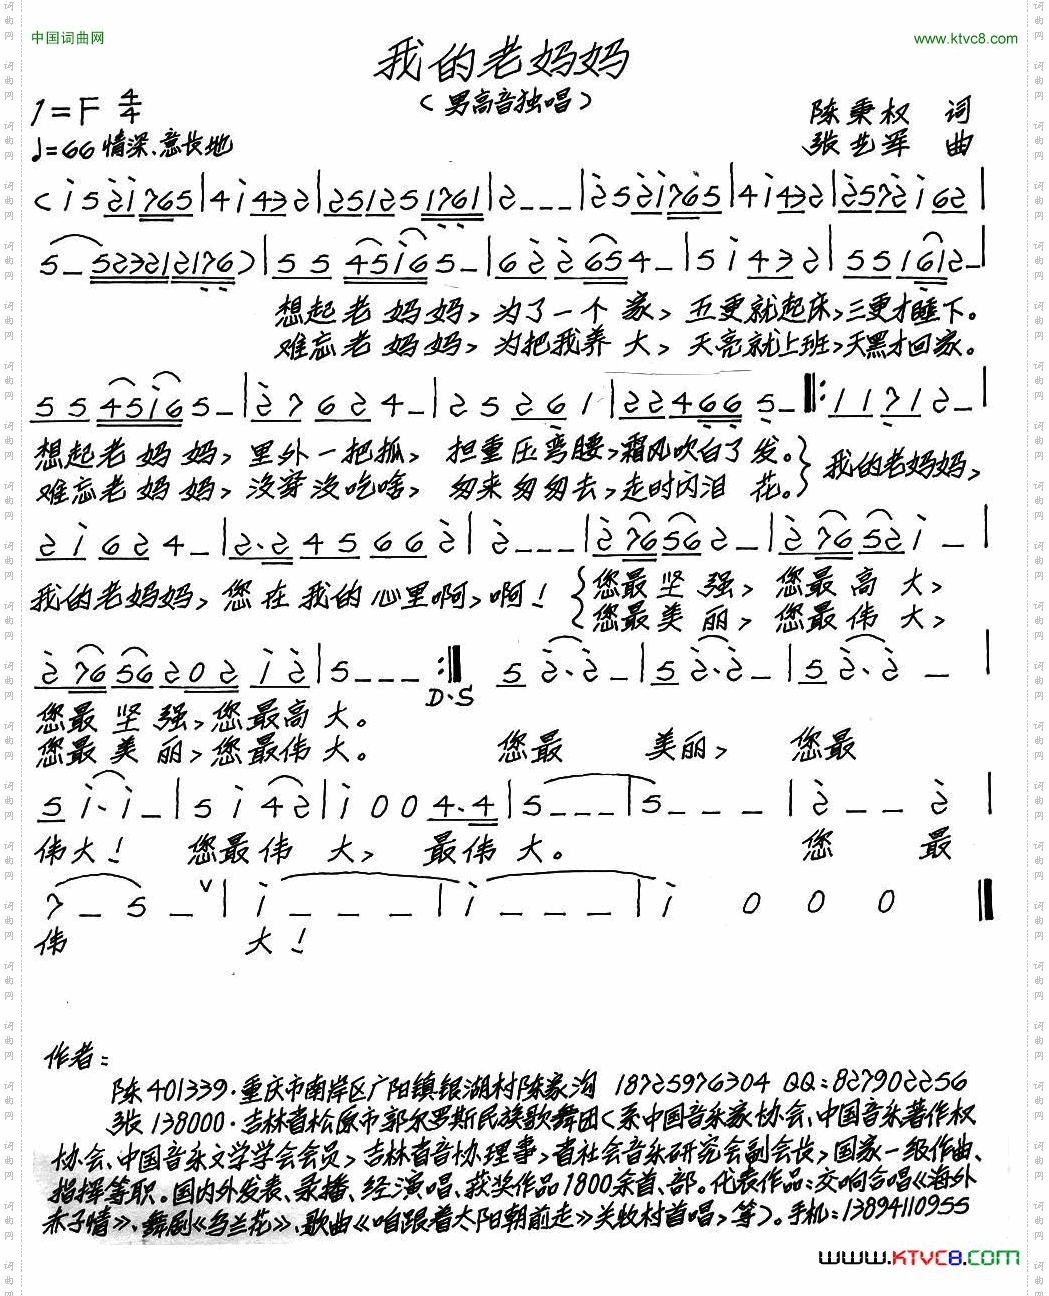 中国词曲网
www.ktvc8.com
我的老妈妈
(男高音独唱)
1=F 4/4
♩=66 情深、意长地
陈秉权 词
张艺军 曲
想起老妈妈,为了一个家,五更就起床,三更才睡下。
难忘老妈妈,为把我养大,天亮就上班,天黑才回家。
想起老妈妈,里外一把抓,担重压弯腰,霜风吹白了发。
我的老妈妈,
难忘老妈妈,没穿没吃啥,匆来匆匆去,走时闪泪花。
我的老妈妈,您在我的心里啊,啊!
您最坚强,您最高大,
您最美丽,您最伟大,
D.S
您最坚强,您最高大。
您最美丽,您最伟大。 您最 美丽, 您最
伟大! 您最伟大, 最伟大。 您 最
伟 大!
作者:
陈401339·重庆市南岸区广阳镇银湖村陈家沟 18725976304 QQ:827902256
张138000·吉林省松原市郭尔罗斯民族歌舞团(系中国音乐家协会、中国音乐著作权
协会、中国音乐文学学会会员,吉林省音协理事,省社会音乐研究会副会长,国家一级作曲、
指挥等职。国内外发表、录播、经演唱、获奖作品1800余首、部。代表作品:交响合唱《海外
赤子情》、舞剧《乌兰花》、歌曲《咱跟着太阳朝前走》关牧村首唱,等)。手机:13894110955
www.KTVC8.com